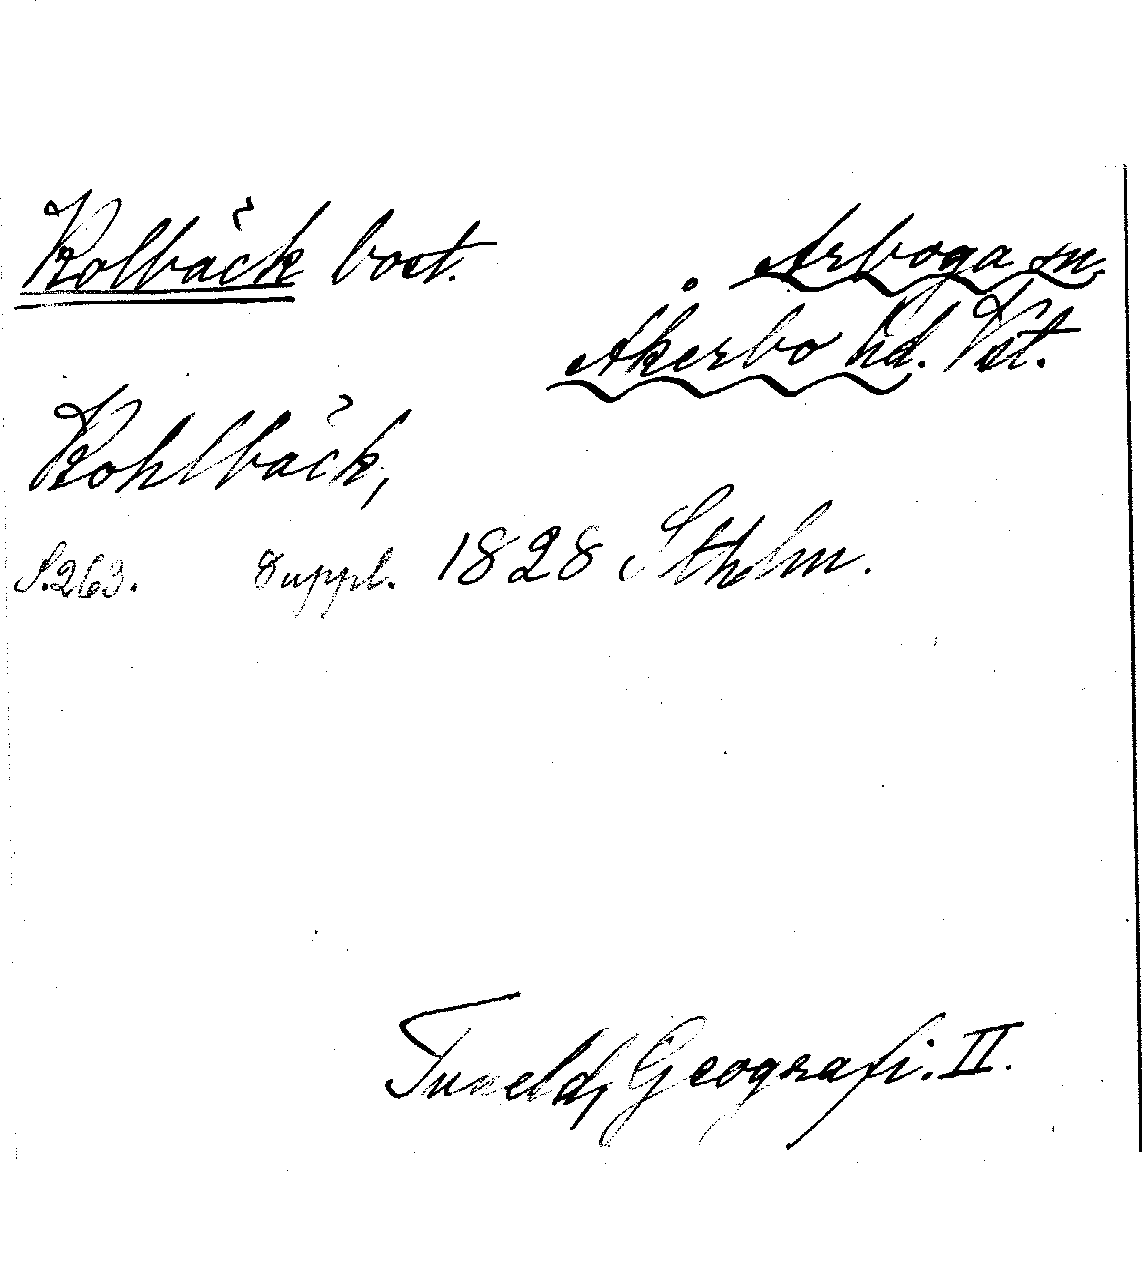 Kolbäck bost. Arboga sn,
Åkerbo hd. Vst.
Kohlbäck,
S.263. Suppl. 1828 Sthlm.
Tuneld, Geografi. II.